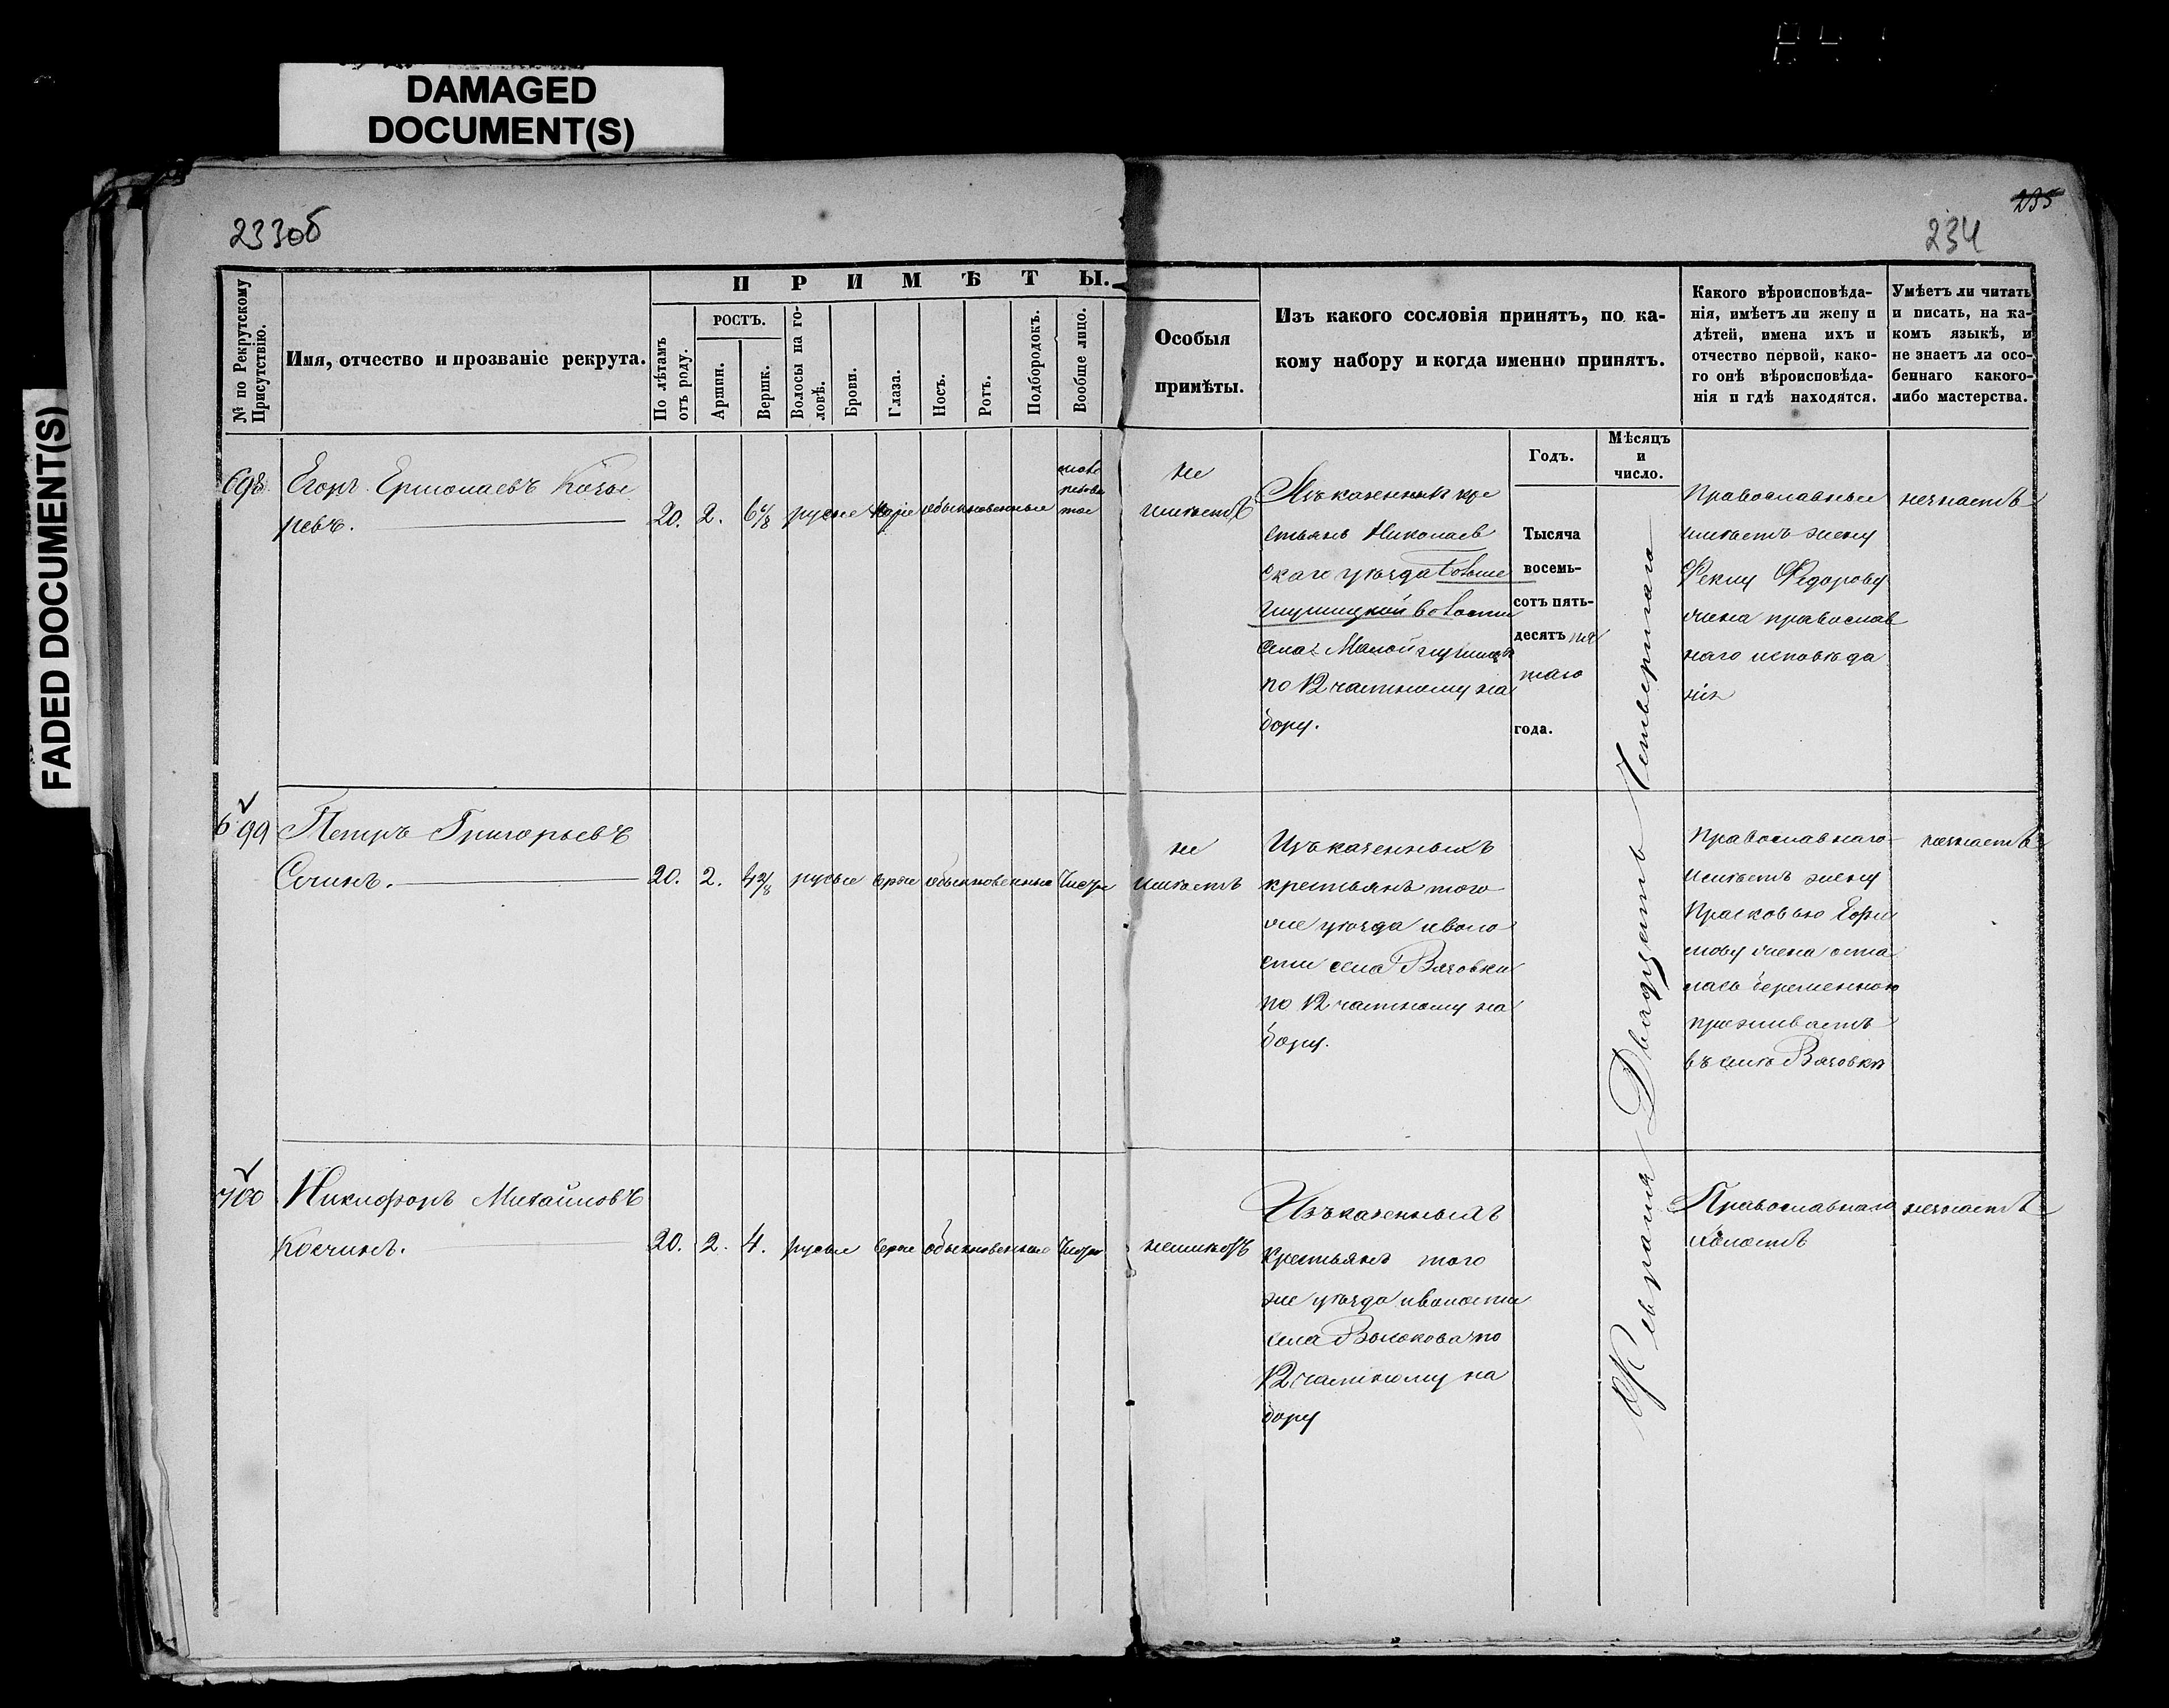 DAMAGED
DOCUMENT(S)
FADED DOCUMENT(S)
233об
235
234
№ по Рекрутскому
Присутствію.
Имя, отчество и прозваніе рекрута.
ПРИМѢТЫ.
По лѣтамъ
отъ роду.
РОСТЪ.
Аршин.
Вершк.
Волосы на го-
ловѣ.
Брови.
Глаза.
Носъ.
Ротъ.
Подбородокъ.
Вообще лицо.
Особыя
примѣты.
Изъ какого сословія принятъ, по ка-
кому набору и когда именно принятъ.
Какого вѣроисповѣда-
нія, имѣетъ ли жену и
дѣтей, имена ихъ и
отчество первой, како-
го онѣ вѣроисповѣда-
нія и гдѣ находятся.
Умѣетъ ли читать
и писать, на ка-
комъ языкѣ, и
не знаетъ ли осо-
беннаго какого-
либо мастерства.
Годъ.
Мѣсяцъ
и
число.
698.
Егоръ Ермолаевъ
ревъ.
20.
2.
6 4/8
русые
каріе
обыкновенные
не
имѣетъ
Изъ казенныхъ кре
стьянъ Николаев
скаго уѣзда Больше
глушицкой волости
села Малой глушицы
по 12 частному на
бору.
Тысяча
восемь-
сотъ пять-
десятъ пя
таго
года.
Православные
имѣетъ жену
Феклу Федорову
жена православ
наго исповѣда
нія
незнаетъ
699
Петръ Григорьевъ
Сочинъ.
20.
2.
4 2/8
русые
серые
обыкновенные
Чистое
не
имѣетъ
Изъ казенныхъ
крестьянъ того
же уѣзда и воло
сти села Вязовки
по 12 частному на
бору.
Православнаго
имѣетъ жену
Прасковью
жена оста
лась беременною
проживаетъ
въ селѣ Вязовкѣ
незнаетъ
700
Никифоръ Михайловъ
Косчинъ.
20.
2.
4.
русые
серые
обыкновенные
Чистое
неимѣетъ
Изъ казенныхъ
крестьянъ того
же уѣзда и волости
села по
12 частному на
бору
Православнаго
холостъ
незнаетъ
Февраля Двадцать Четвертаго